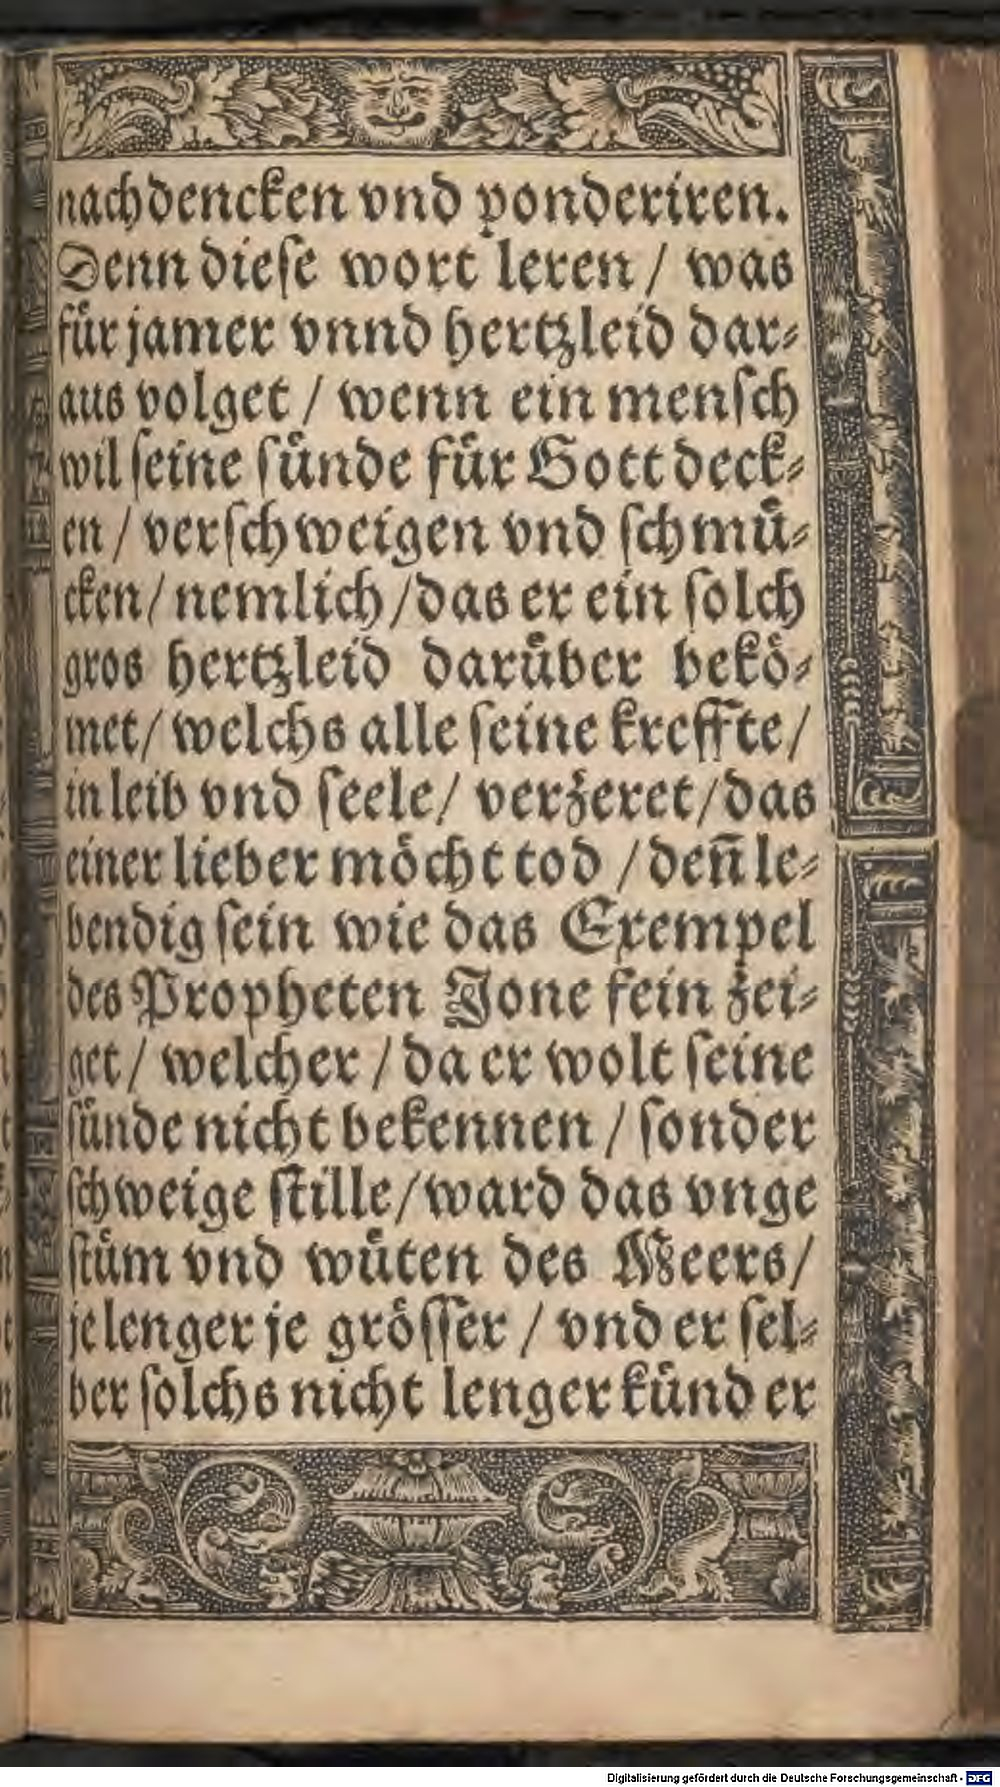 nachdencken vnd ponderiren.
Denn dieſe wort leren / was
für jamer vnnd hertzleid dar⸗
aus volget / wenn ein menſch
wil ſeine ſuͤnde fuͤr Gott deck⸗
en / verſchweigen vnd ſchmuͤ⸗
cken / nemlich / das er ein ſolch
gros hertzleid daruͤber bekoͤ⸗
met / welchs alle ſeine kreffte /
in leib vnd ſeele / verzeret / das
einer lieber moͤcht tod / deñ le⸗
bendig ſein wie das Exempel
des Propheten Jone fein zei⸗
get / welcher / da er wolt ſeine
ſünde nicht bekennen / ſonder
ſchweige ſtille / ward das vnge
ſtüm vnd wuͤten des Meers /
je lenger je groͤſſer / vnd er ſel⸗
ber ſolchs nicht lenger künd er
Digitalisierung gefördert durch die Deutsche Forschungsgemeinschaft - DFG